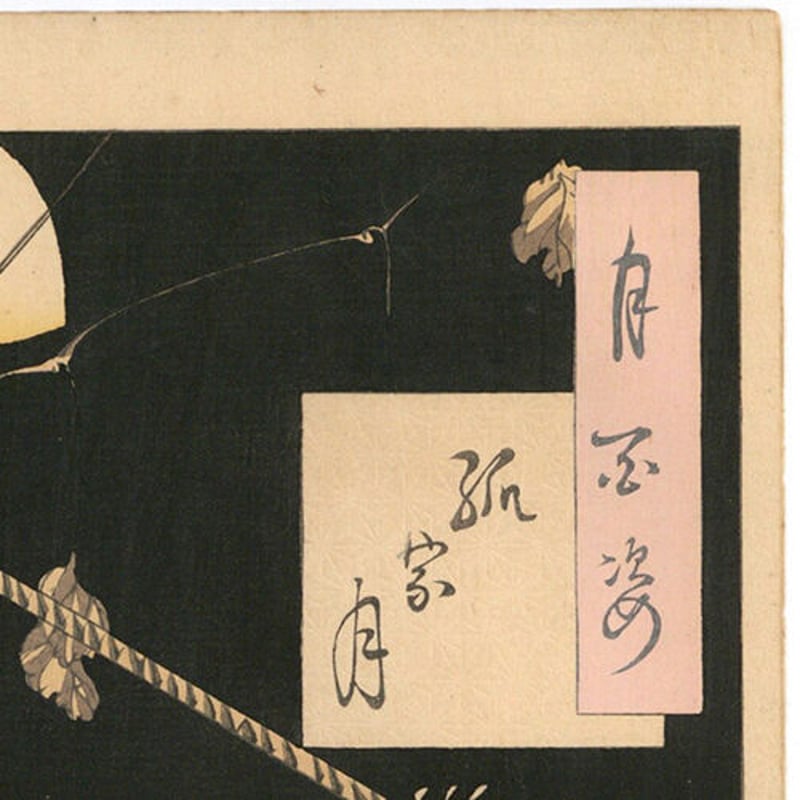 月百姿
孤家月